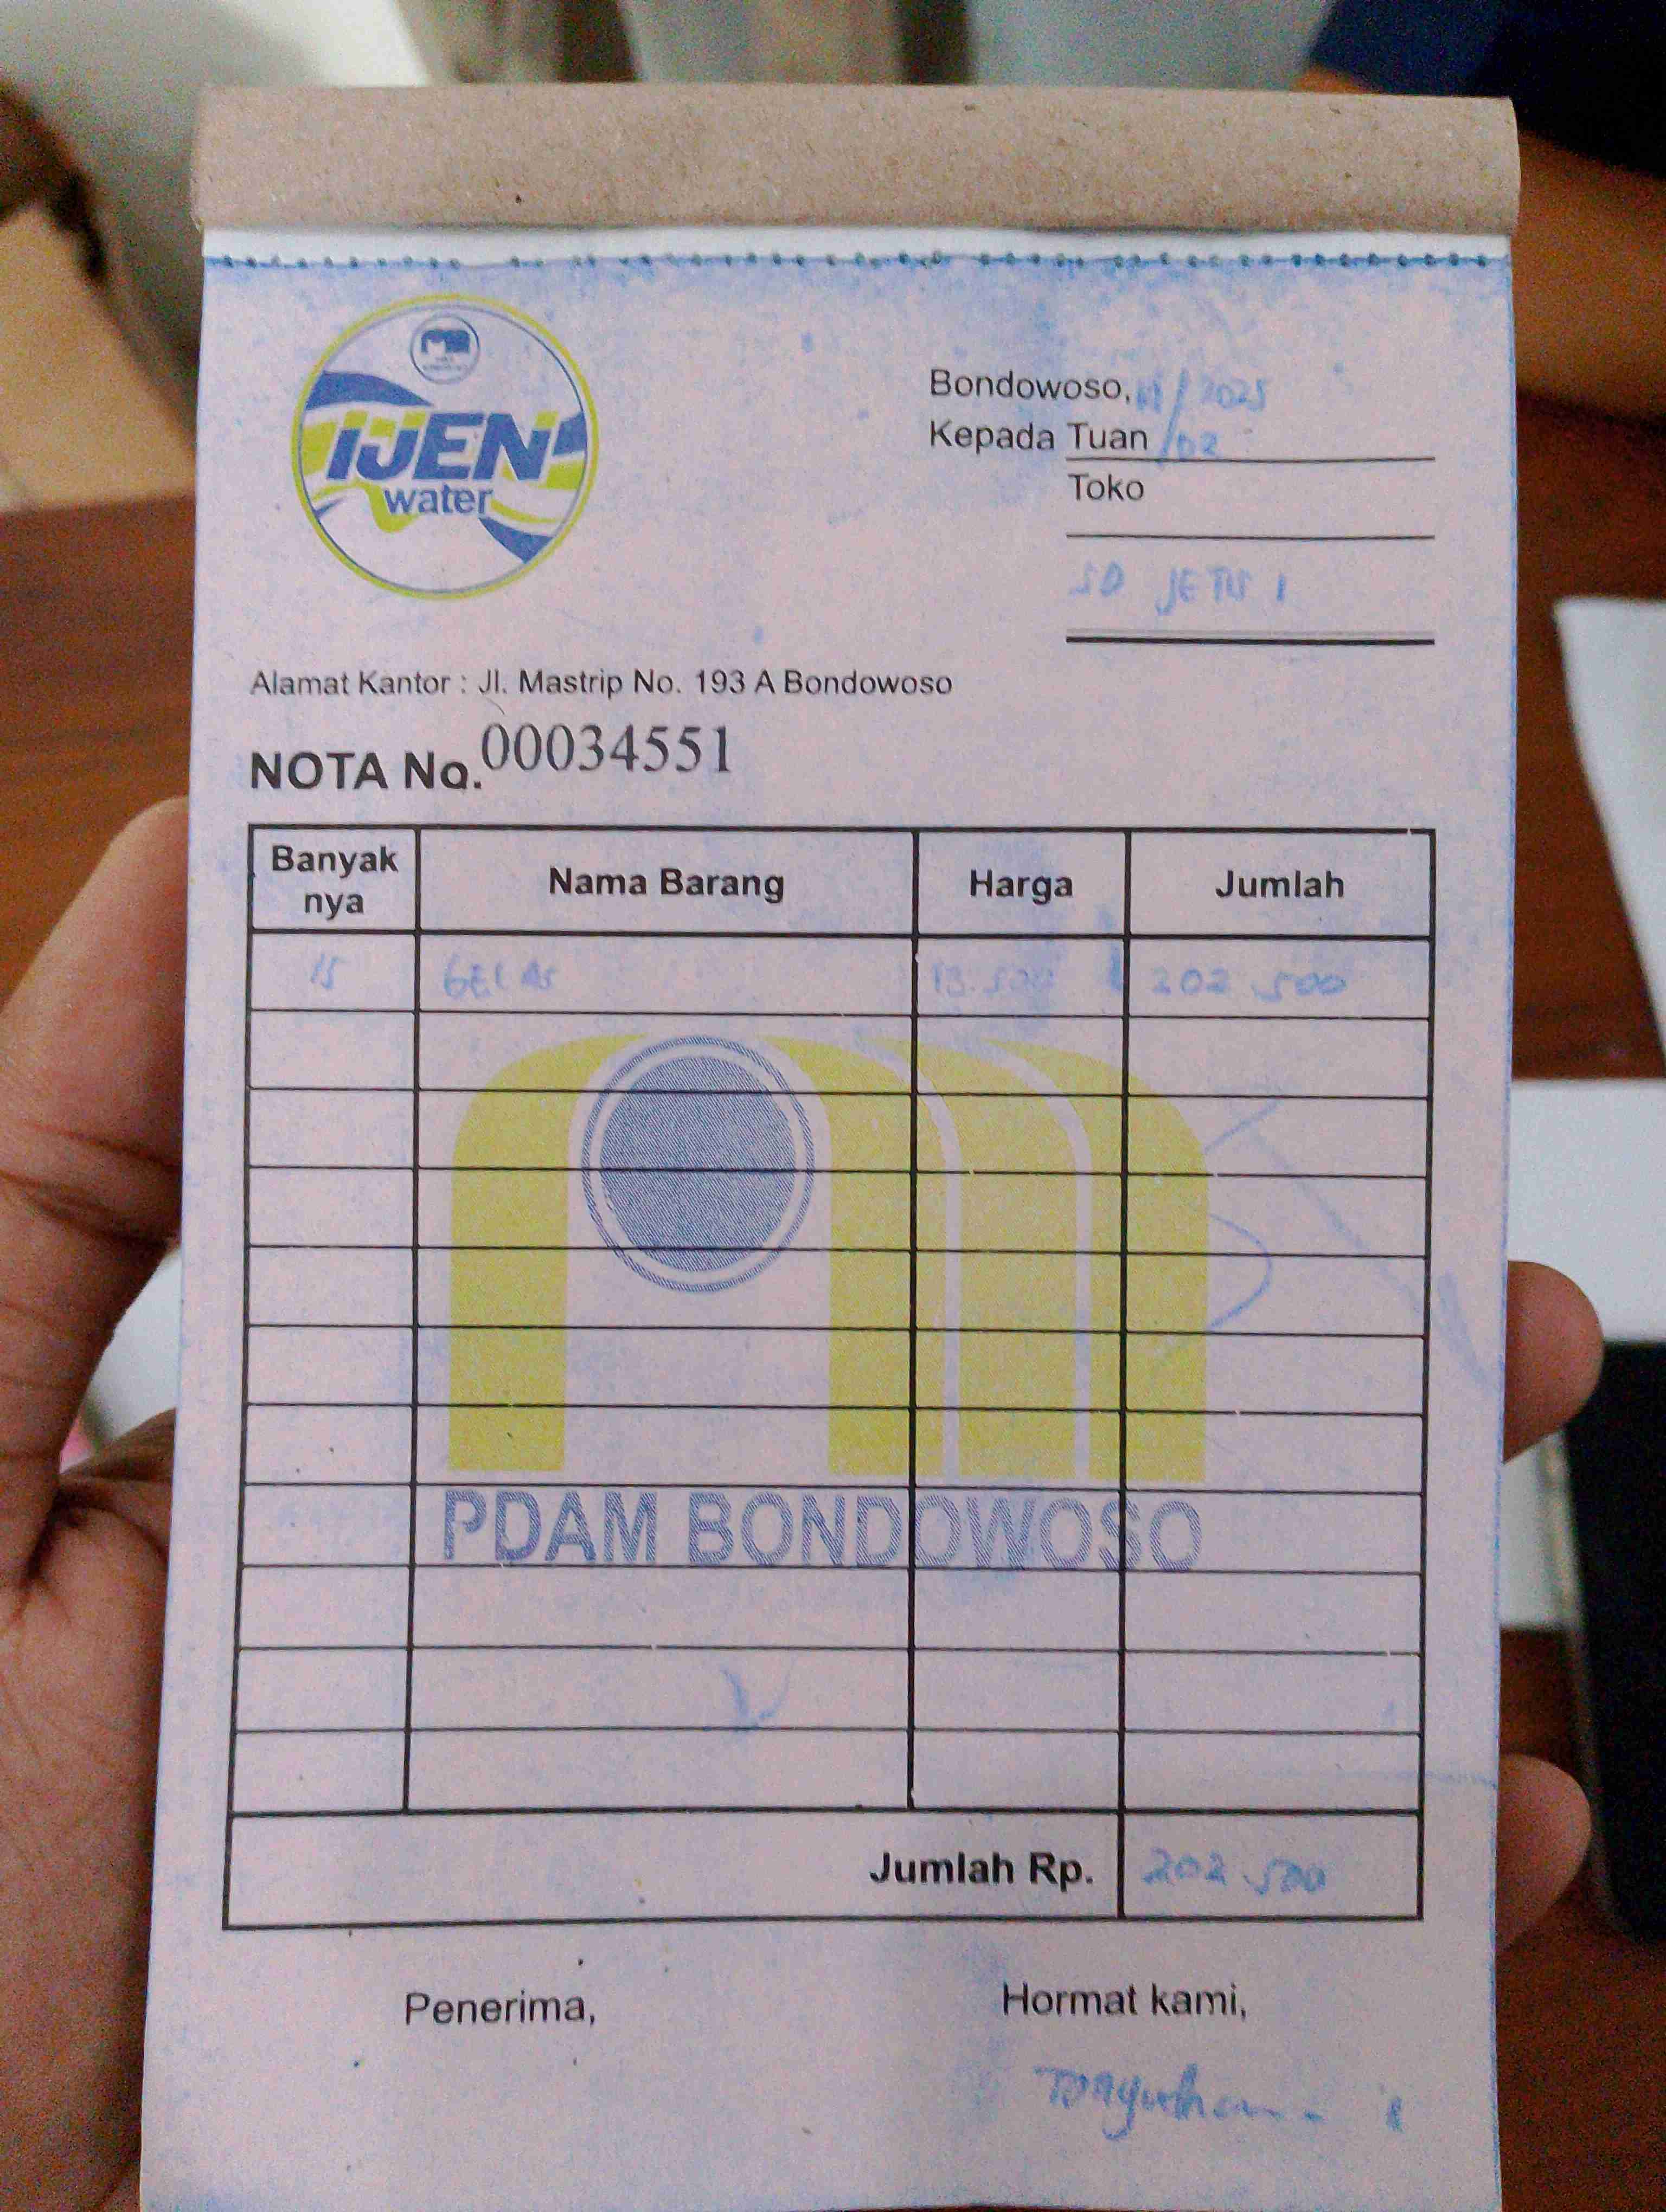 IJEN
water
Bondowoso, / 2025
Kepada Tuan /02
Toko
SD JETIS 1
Alamat Kantor : Jl. Mastrip No. 193 A Bondowoso
NOTA No. 00034551
Banyak nya Nama Barang Harga Jumlah
15 GELAS 13.500 202.500
PDAM BONDOWOSO
Jumlah Rp. 202.500
Penerima, Hormat kami,